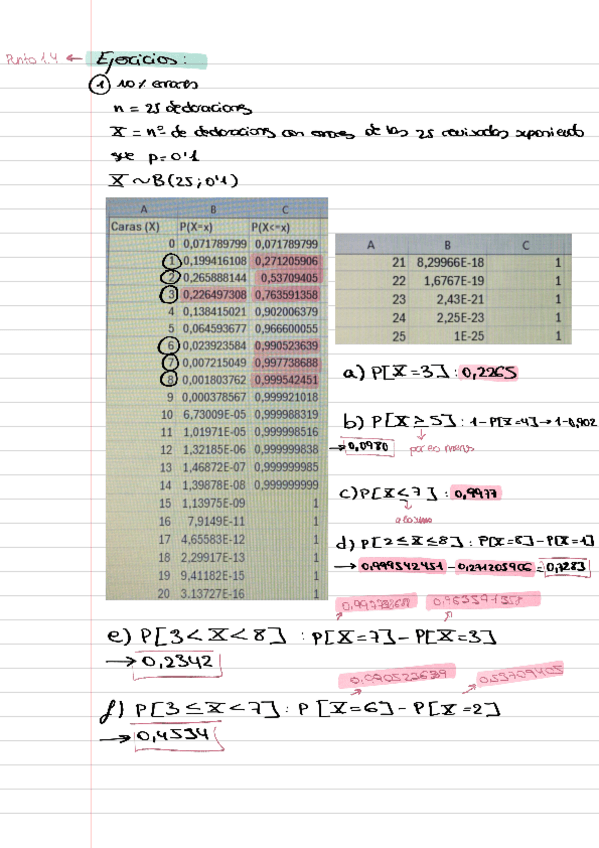 Punto 1.4 ← Ejercicios:
① 10% errores
n = 25 declaraciones
X = nº de declaraciones con errores de las 25 revisadas suponiendo
que p=0'1
X ~ B(25; 0'1)
A B C
Caras (X) P(X=x) P(X<=x)
0 0,071789799 0,071789799
1 0,199416108 0,271205906
2 0,265888144 0,53709405
3 0,226497308 0,763591358
4 0,138415021 0,902006379
5 0,064593677 0,966600055
6 0,023923584 0,990523639
7 0,007215049 0,997738688
8 0,001803762 0,999542451
9 0,000378567 0,999921018
10 6,73009E-05 0,999988319
11 1,01971E-05 0,999998516
12 1,32185E-06 0,999999838
13 1,46872E-07 0,999999985
14 1,39878E-08 0,999999999
15 1,13975E-09 1
16 7,9149E-11 1
17 4,65583E-12 1
18 2,29917E-13 1
19 9,41182E-15 1
20 3,13727E-16 1
A B C
21 8,29966E-18 1
22 1,6767E-19 1
23 2,43E-21 1
24 2,25E-23 1
25 1E-25 1
a) P[X=3]: 0,2265
b) P[X ≥ 5]: 1-P[X=4] → 1-0,902
→ 0,0980 por lo menos
c) P[X ≤ 7]: 0,9977
a lo sumo
d) P[2 ≤ X ≤ 8]: P[X=8] - P[X=1]
→ 0.999542451 - 0,271205906 = 0,7283
0,997738688 0,763591358
e) P[3 < X < 8] : P[X=7] - P[X=3]
→ 0,2342
0.990523639 0,53709405
f) P[3 ≤ X < 7]: P[X=6] - P[X=2]
→ 0,4534